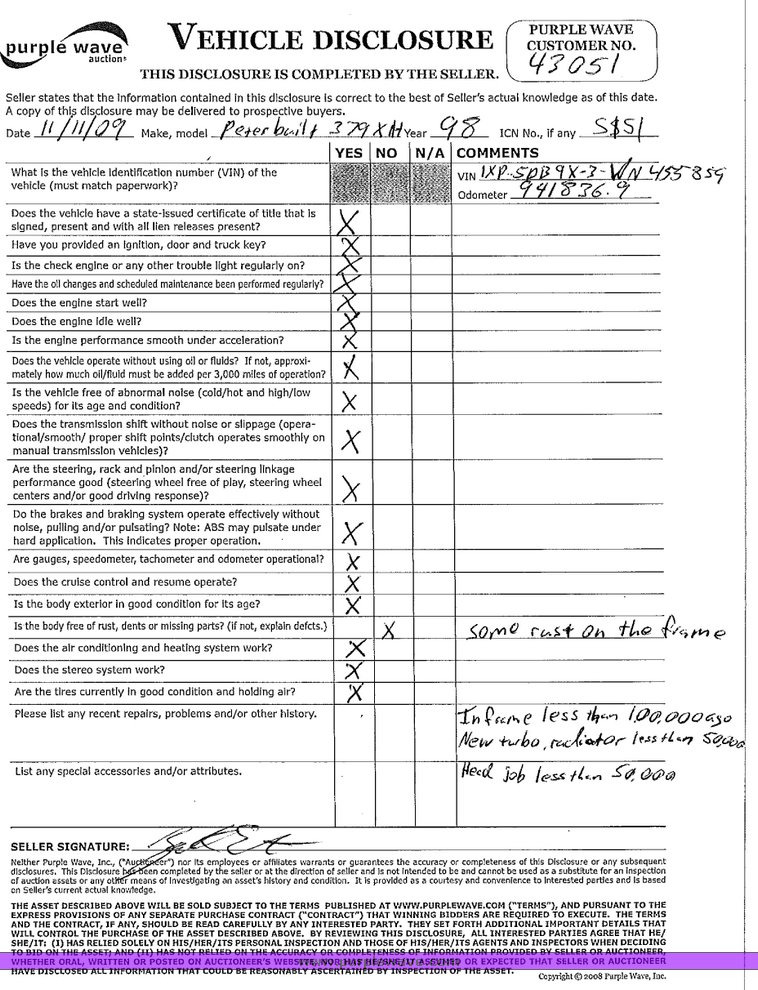 purple wave
auction®
VEHICLE DISCLOSURE
THIS DISCLOSURE IS COMPLETED BY THE SELLER.
PURPLE WAVE
CUSTOMER NO.
43051
Seller states that the information contained in this disclosure is correct to the best of Seller's actual knowledge as of this date.
A copy of this disclosure may be delivered to prospective buyers.
Date 11/11/09 Make, model Peterbuilt 379XH Year 98 ICN No., if any
YES NO N/A COMMENTS
What is the vehicle identification number (VIN) of the
vehicle (must match paperwork)?
VIN 1XP-5DB9X-3-WN455859
Odometer 941836.9
Does the vehicle have a state-issued certificate of title that is
signed, present and with all lien releases present? X
Have you provided an ignition, door and truck key? X
Is the check engine or any other trouble light regularly on? X
Have the oil changes and scheduled maintenance been performed regularly? X
Does the engine start well? X
Does the engine idle well? X
Is the engine performance smooth under acceleration? X
Does the vehicle operate without using oil or fluids? If not, approxi-
mately how much oil/fluid must be added per 3,000 miles of operation? X
Is the vehicle free of abnormal noise (cold/hot and high/low
speeds) for its age and condition? X
Does the transmission shift without noise or slippage (opera-
tional/smooth/ proper shift points/clutch operates smoothly on
manual transmission vehicles)? X
Are the steering, rack and pinion and/or steering linkage
performance good (steering wheel free of play, steering wheel
centers and/or good driving response)? X
Do the brakes and braking system operate effectively without
noise, pulling and/or pulsating? Note: ABS may pulsate under
hard application. This indicates proper operation. X
Are gauges, speedometer, tachometer and odometer operational? X
Does the cruise control and resume operate? X
Is the body exterior in good condition for its age? X
Is the body free of rust, dents or missing parts? (if not, explain defcts.) X some rust on the frame
Does the air conditioning and heating system work? X
Does the stereo system work? X
Are the tires currently in good condition and holding air? X
Please list any recent repairs, problems and/or other history.
Inframe less than 100,000 ago
New turbo, radiator less than 50,000
List any special accessories and/or attributes.
Head job less than 50,000
SELLER SIGNATURE:
Neither Purple Wave, Inc., ("Auctioneer") nor its employees or affiliates warrants or guarantees the accuracy or completeness of this Disclosure or any subsequent
disclosures. This Disclosure has been completed by the seller or at the direction of seller and is not intended to and cannot be used as a substitute for an inspection
of auction assets or any other means of investigating an asset's history and condition. It is provided as a courtesy and convenience to interested parties and is based
on Seller's current actual knowledge.
THE ASSET DESCRIBED ABOVE WILL BE SOLD SUBJECT TO THE TERMS PUBLISHED AT WWW.PURPLEWAVE.COM ("TERMS"), AND PURSUANT TO THE
EXPRESS PROVISIONS OF ANY SEPARATE PURCHASE CONTRACT ("CONTRACT") THAT WINNING BIDDERS ARE REQUIRED TO EXECUTE. THE TERMS
AND THE CONTRACT, IF ANY, SHOULD BE READ CAREFULLY BY ANY INTERESTED PARTY. THEY SET FORTH ADDITIONAL IMPORTANT DETAILS THAT
WILL CONTROL THE PURCHASE OF THE ASSET DESCRIBED ABOVE. BY REVIEWING THIS DISCLOSURE, ALL INTERESTED PARTIES AGREE THAT HE/
SHE/IT: (I) HAS RELIED SOLELY ON HIS/HER/ITS PERSONAL INSPECTION AND THOSE OF HIS/HER/ITS AGENTS AND INSPECTORS WHEN DECIDING
TO BID ON THE ASSET; AND (II) HAS NOT RELIED ON THE ACCURACY OR COMPLETENESS OF INFORMATION PROVIDED BY SELLER OR AUCTIONEER,
WHETHER ORAL, WRITTEN OR POSTED ON AUCTIONEER'S WEBSITE, NOR HAS HE/SHE/IT ASSUMED OR EXPECTED THAT SELLER OR AUCTIONEER
HAVE DISCLOSED ALL INFORMATION THAT COULD BE REASONABLY ASCERTAINED BY INSPECTION OF THE ASSET.
Copyright © 2008 Purple Wave, Inc.